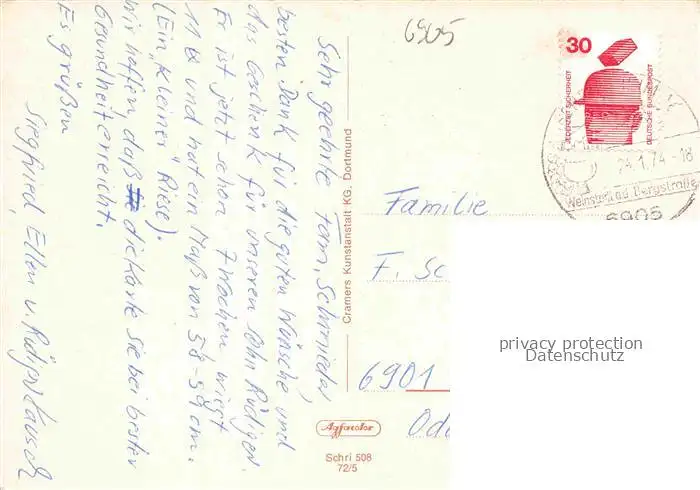 6905
Sehr geehrte Fam. Schmieder,
besten Dank für die guten Wünsche und
das Geschenk für unseren Sohn Rüdiger.
Er ist jetzt schon 7 Wochen, wiegt
11 ℔ und hat ein Maß von 58-59 cm.
(Ein "kleiner" Riese).
Wir hoffen, daß die Karte Sie bei bester
Gesundheit erreicht.
Es grüßen
Siegfried, Ellen u. Rüdiger Lausch
Cramers Kunstanstalt KG, Dortmund
30
JEDERZEIT SICHERHEIT
DEUTSCHE BUNDESPOST
24.1.74-18
Weinstadt a.d. Bergstraße
6905
Familie
F. Sc
6901
Ode
privacy protection
Datenschutz
Agfacolor
Schri 508
72/5